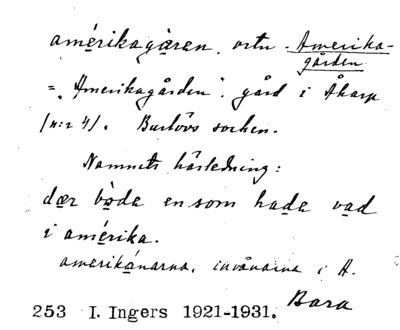 amérikagåren, ortn. Amerika-
gården
= "Amerikagården", gård i Åkarp
(n:r 4). Burlövs socken.
Namnets härledning:
dær bòde en som hade vad
i amérika.
amerikánarna, invånarna i A.
Bara
253 I. Ingers 1921-1931.